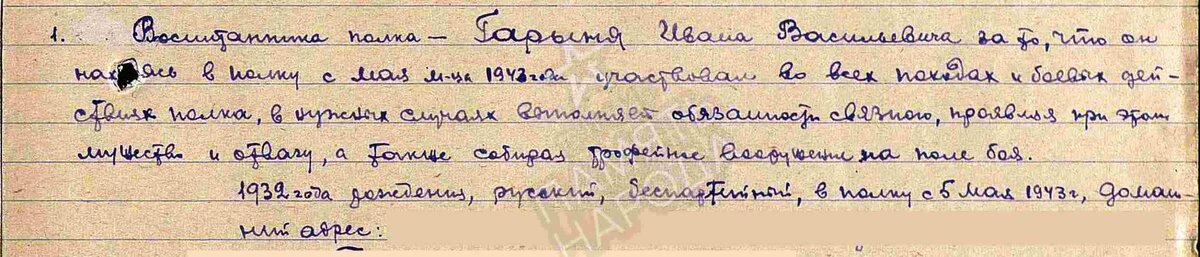 1. Воспитанника полка – Гарыня Ивана Васильевича за то, что он
находясь в полку с мая м-ца 1943 года участвовал во всех походах и боевых дей-
ствиях полка, в нужных случаях выполняет обязанности связного, проявляя при этом
мужество и отвагу, а также собирая трофейное вооружение на поле боя.
1932 года рождения, русский, беспартийный, в полку с 5 мая 1943 г, домаш-
ний адрес:
ПАМЯТЬ
НАРОДА